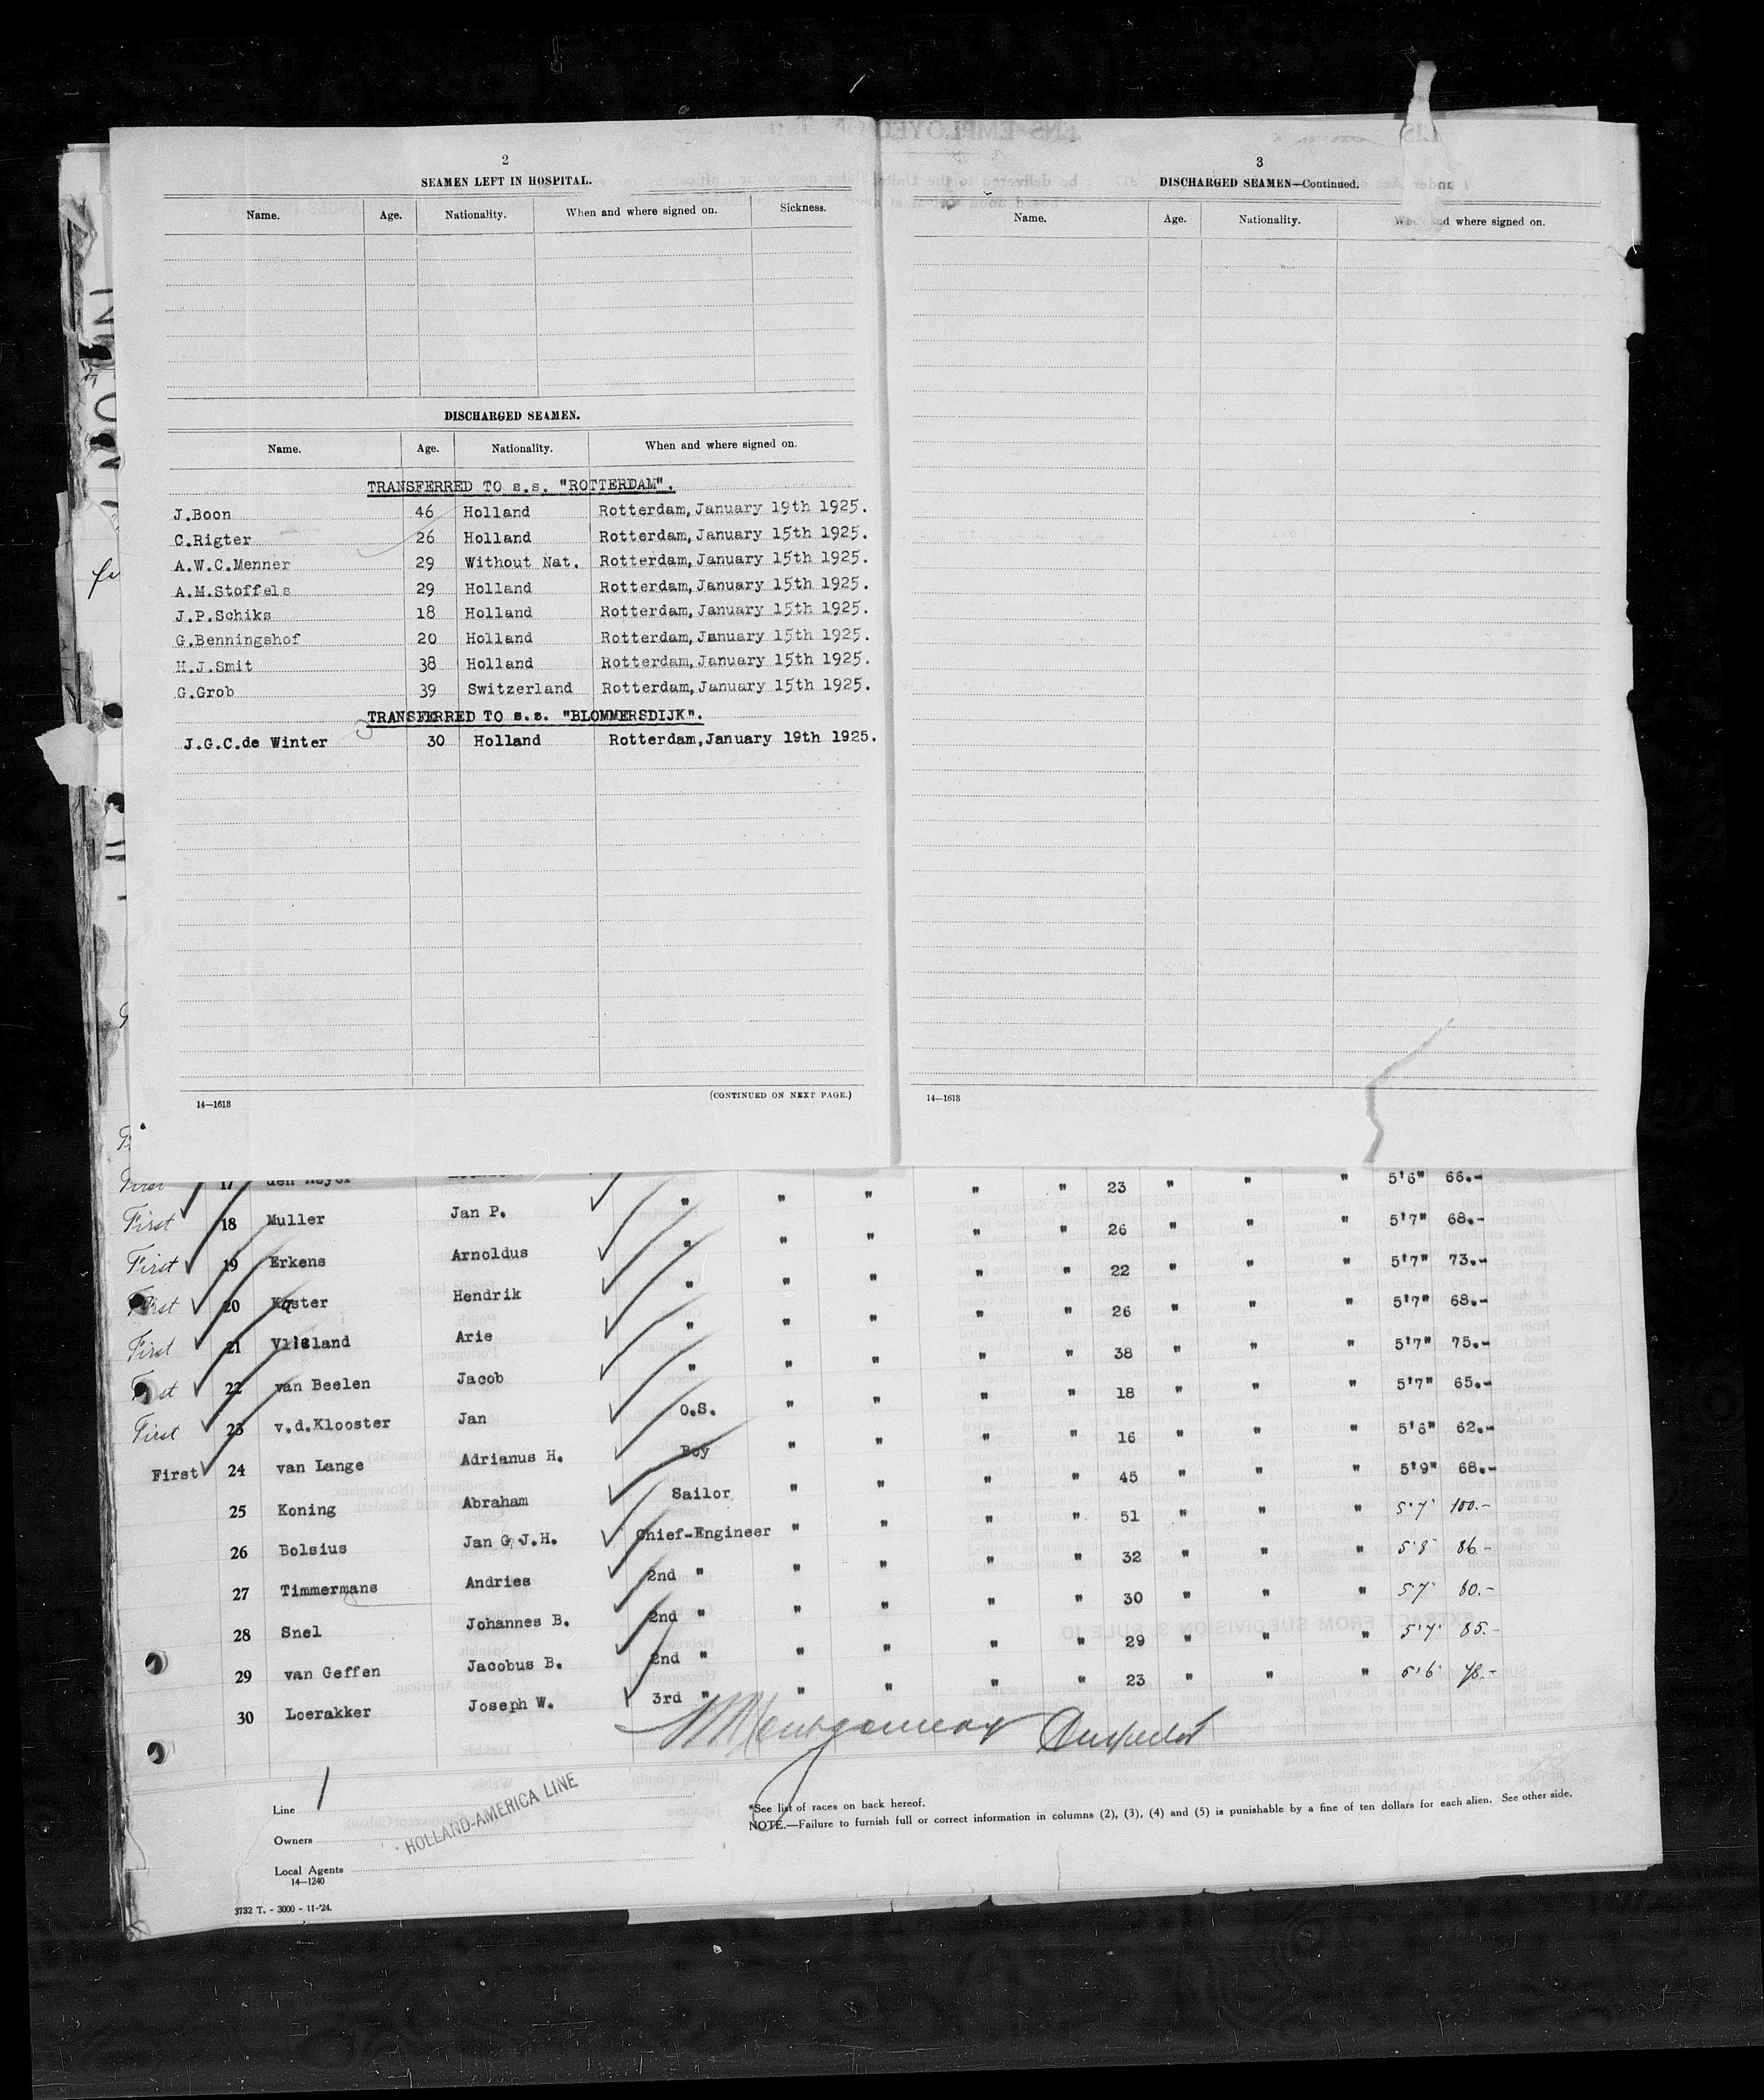 2
SEAMEN LEFT IN HOSPITAL.
Name. Age. Nationality. When and where signed on. Sickness.
DISCHARGED SEAMEN.
Name. Age. Nationality. When and where signed on.
TRANSFERRED TO s.s. "ROTTERDAM".
J.Boon 46 Holland Rotterdam, January 19th 1925.
C.Rigter 26 Holland Rotterdam, January 15th 1925.
A.W.C.Menner 29 Without Nat. Rotterdam, January 15th 1925.
A.M.Stoffels 29 Holland Rotterdam, January 15th 1925.
J.P.Schiks 18 Holland Rotterdam, January 15th 1925.
G.Benningshof 20 Holland Rotterdam, January 15th 1925.
H.J.Smit 38 Holland Rotterdam, January 15th 1925.
G.Grob 39 Switzerland Rotterdam, January 15th 1925.
TRANSFERRED TO s.s. "BLOMMERSDIJK".
J.G.C.de Winter 30 Holland Rotterdam, January 19th 1925.
14—1618 (CONTINUED ON NEXT PAGE.)
3
DISCHARGED SEAMEN—Continued.
Name. Age. Nationality. and where signed on.
14—1618
17 " " " " " 23 " " " 5'6" 66.-
First 18 Muller Jan P. " " " " " 26 " " " 5'7" 68.-
First 19 Erkens Arnoldus " " " " " 22 " " " 5'7" 73.-
First 20 Koster Hendrik " " " " " 26 " " " 5'7" 68.-
First 21 Vlieland Arie " " " " " 38 " " " 5'7" 75.-
22 van Beelen Jacob " " " " " 18 " " " 5'7" 65.-
First 23 v.d.Klooster Jan O.S. " " " " 16 " " " 5'6" 62.-
First 24 van Lange Adrianus H. Boy " " " " 45 " " " 5'9" 68.-
25 Koning Abraham Sailor " " " " 51 " " " 5'7" 100.-
26 Bolsius Jan G.J.H. Chief-Engineer " " " " 32 " " " 5'8" 86.-
27 Timmermans Andries 2nd " " " " " 30 " " " 5'7" 80.-
28 Snel Johannes B. 2nd " " " " " 29 " " " 5'7" 85.-
29 van Geffen Jacobus B. 2nd " " " " " 23 " " " 5'6"
30 Loerakker Joseph W. 3rd " " "
Montgomery Inspector
Line
Owners HOLLAND-AMERICA LINE
Local Agents
14—1240
3732 T. - 3000 - 11-'24.
*See list of races on back hereof.
NOTE.—Failure to furnish full or correct information in columns (2), (3), (4) and (5) is punishable by a fine of ten dollars for each alien. See other side.